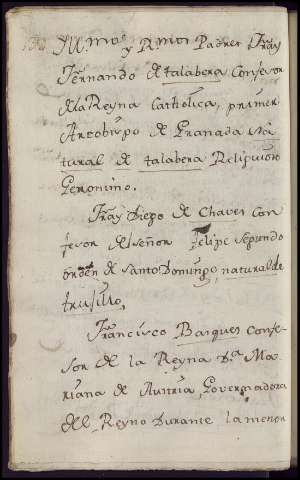 Yll.mos y R.mos Padres Fray
Fernando de talabera Confesor
de la Reyna Catholica, primer
Arcobispo de Granada na
tural de talabera Religioso
Geronimo.
Fray Diego de Chaves Con
fesor del señor Felipe segundo
orden de Santo Domingo, natural de
trusillo,
Francisco Basques Confe
sor de la Reyna D.ª Ma
riana de Austria, Governadora
del Reyno Durante la menor